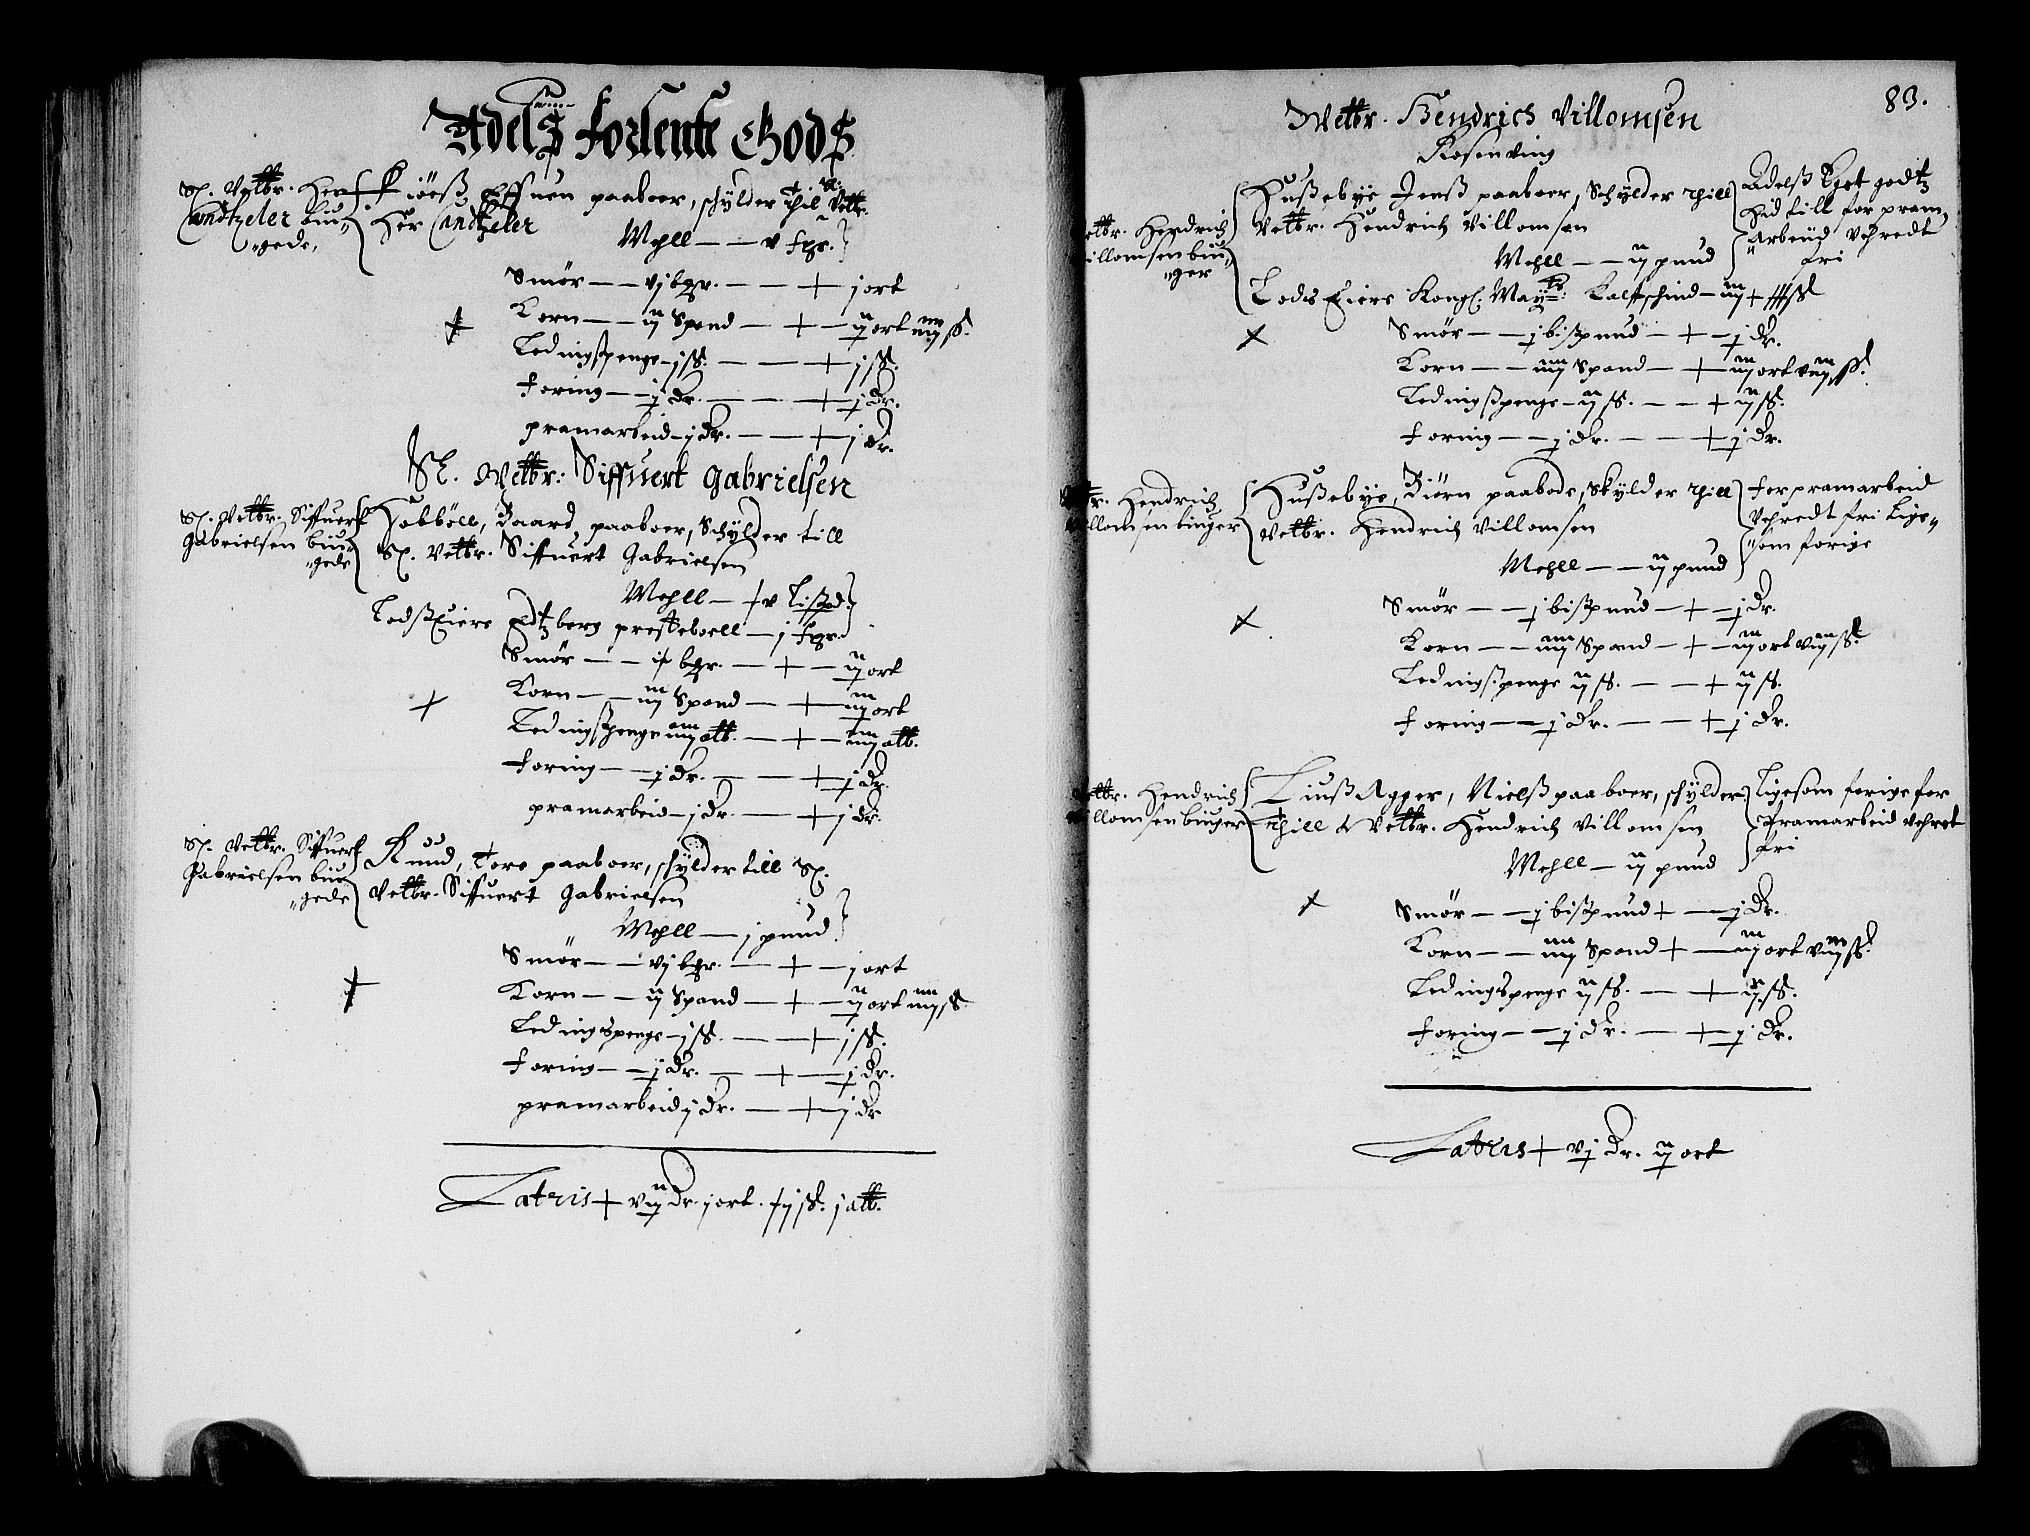 Adelß forlente Godß
Sl. Velbr. Her
Candtzeler buu„
„gede,
Kiöeß, Effuen paaboer, schylder thil Sl: Velb:
Her Candtzeler
Mehll — — v fgr.
Smör — — vj bgr. — — + j ort
Korn — — ij Spand — + — ij ort iiij ß.
Ledingßpenge — j ß. — — + j ß.
foring — — j dr. — — + j dr.
pramarbeid — j dr. — — + j dr.
Sl. Velbr: Siffuert Gabrielsen
Sl. Velbr. Siffuert
Gabrielsen buu„
„gede
Hobböll, Baard paaboer, Schylder till
Sl. Velbr. Siffuert Gabrielsen
Mehll — v Lißpd.
LodßEiere Edtzberg presteboell — j fgr.
Smör — — bgr. — + — ij ort
Korn — — iij Spand — + — iij ort
Ledingßpenge iiij alb. — + — iiij alb.
foring — — j dr. — — + j dr.
pramarbeid — j dr. — + j dr.
Sl. Velbr. Siffuert
Gabrielsen buu
„gede
Kuud, Tore paaboer, schylder till Sl.
Velbr. Siffuert Gabrielsen
Mehll — j pund
Smör — — vj bgr. — + — j ort
Korn — — ij Spand — + — ij ort iiij ß
Ledingspenge — j ß. — — + j ß.
foring — — j dr. — + — j dr.
pramarbeid j dr. — + — j dr
Latris + vij dr. j ort. j ß. j alb.
83.
Velbr. Hendrich Villomsen
Rosenving
Velbr. Hendrich
Villomsen buu„
„ger
Hußebÿe Jenß paaboer, Schylder thill
Velbr. Hendrich Villomsen
Mehll — — ij pund
Lodis Eiere Kongl. Maytz: Kalffschind — iij + ß
Adelß godtz
Hid till for pram„
Arbeid Vehredt
fri
Smör — — j bißpund — + — j dr.
Korn — — iiij Spand — + — iij ort viij ß.
Ledingßpenge — ij ß. — — + ij ß.
foring — — j dr. — — + j dr.
Velbr. Hendrich
Villomsen buuger
Hußebÿe, Biörn paabode, Skylder thill
Velbr. Hendrich Villomsen
Mehll — — ij pund
for pramarbeid
Vehredt fri Lige„
„som forige
Smör — — j bißpund — + — j dr.
Korn — — iiij Spand — + — iij ort viij ß.
Ledingßpenge ij ß. — — + ij ß.
foring — — j dr. — — + j dr.
Velbr. Hendrich
Villomsen buuger
Liuß Agger, Nielß paaboer, schylder
thill Velbr. Hendrich Villomsen
Mehll — ij pund
Ligesom forige for
Pramarbeid Vehret
fri
Smör — — j bißpund + — j dr.
Korn — — iiij Spand + — iij ort viij ß.
Ledingspenge ij ß. — + ij ß.
foring — — j dr. — + j dr.
Latris + vj dr. ij ort